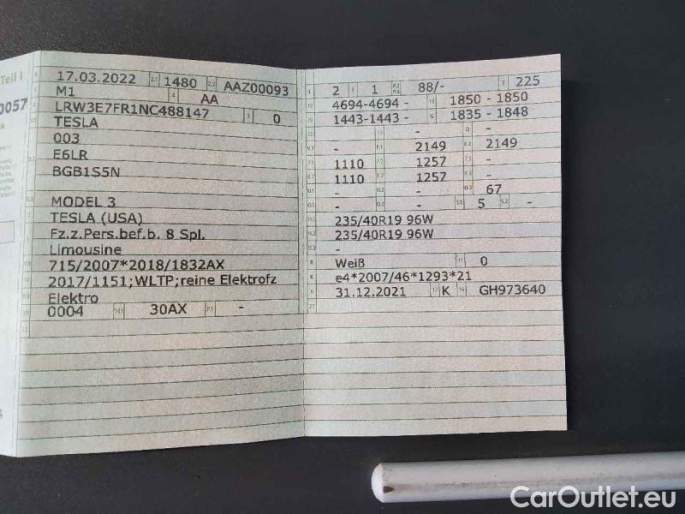 Teil I
0057
17.03.2022 1480 AAZ00093
M1 AA
LRW3E7FR1NC488147 0
TESLA
003
E6LR
BGB1S5N
MODEL 3
TESLA (USA)
Fz.z.Pers.bef.b. 8 Spl.
Limousine
715/2007*2018/1832AX
2017/1151;WLTP;reine Elektrofz
Elektro
0004 30AX -
2 1 88/- 225
4694-4694 - 1850 - 1850
1443-1443 - 1835 - 1848
- - -
- 2149 2149
1110 1257 -
1110 1257 -
- - 67
- - 5 -
235/40R19 96W
235/40R19 96W
-
Weiß 0
e4*2007/46*1293*21
31.12.2021 K GH973640
CarOutlet.eu